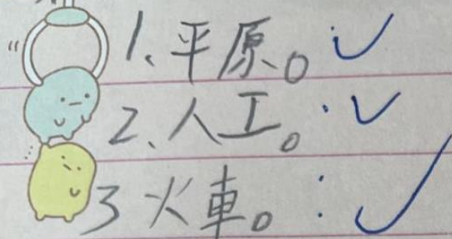 1、平原。
2、人工。
3 火車。